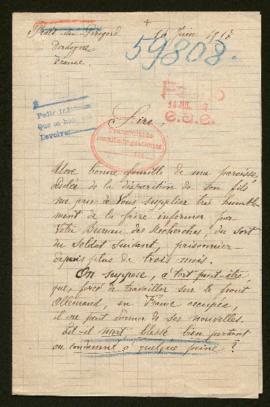 Périgord
Juin 191
Dordogne
59808.
France
Sire,
Une bonne famille de ma paroisse,
de la disparition de son fils
me prie de Vous supplier très humble-
ment de la faire informer par
Votre Bureau des Recherches, du sort
du Soldat Suivant, prisonnier
depuis plus de trois mois.
On suppose, à tort peut-être,
que, forcé de travailler sur le front
Allemand, en France occupée,
il ne peut donner de ses nouvelles.
Est-il mort, blessé, bien portant
ou condamné à quelque peine ?